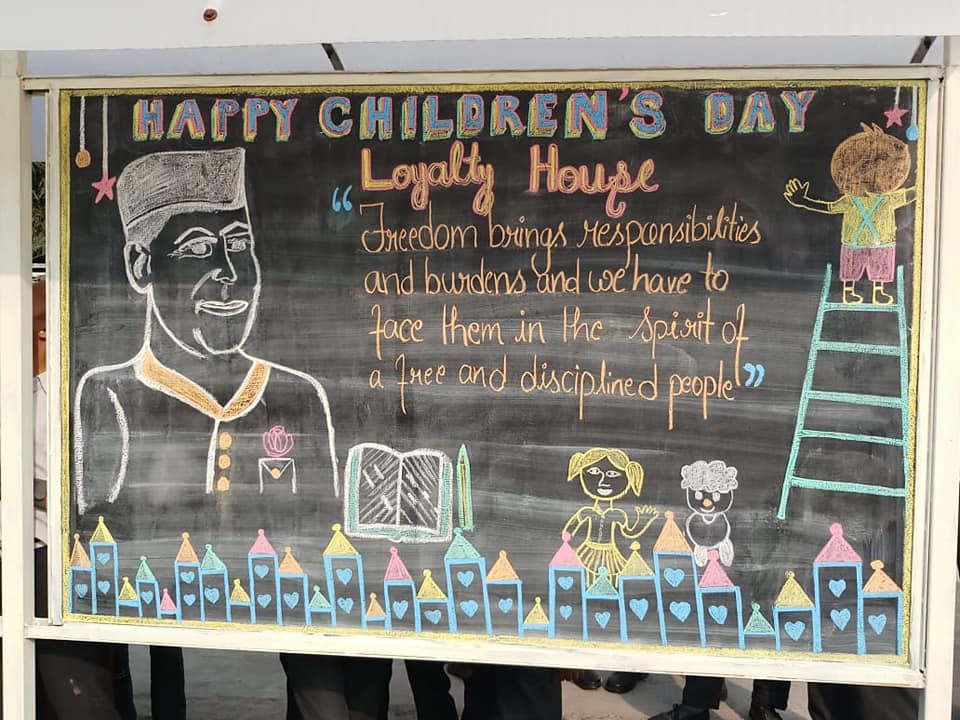 HAPPY CHILDREN'S DAY
Loyalty House
“Freedom brings responsibilities
and burdens and we have to
face them in the spirit of
a free and disciplined people”